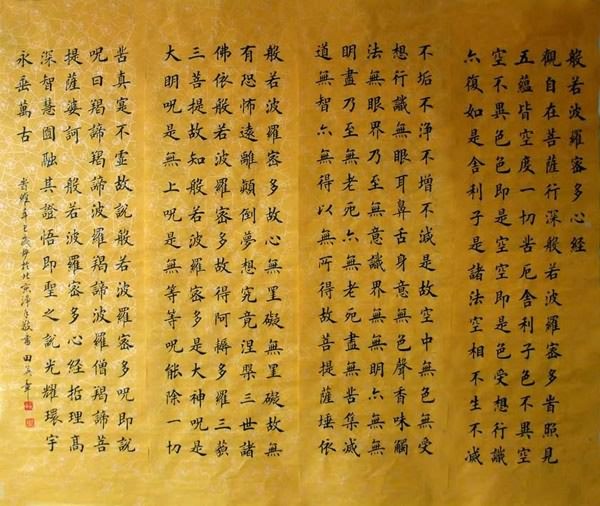 般若波羅密多心經
觀自在菩薩行深般若波羅密多旹照見
五蘊皆空度一切苦厄舍利子色不異空
空不異色色即是空空即是色受想行識
亦復如是舍利子是諸法空相不生不滅
不垢不淨不增不減是故空中無色無受
想行識無眼耳鼻舌身意無色聲香味觸
法無眼界乃至無意識界無無明亦無無
明盡乃至無老死亦無老死盡無苦集滅
道無智亦無得以無所得故菩提薩埵依
般若波羅密多故心無罣礙無罣礙故無
有恐怖遠離顛倒夢想究竟涅槃三世諸
佛依般若波羅密多故得阿耨多羅三藐
三菩提故知般若波羅密多是大神呪是
大明呪是無上呪是無等等呪能除一切
苦真實不虛故說般若波羅密多呪即說
呪曰羯諦羯諦波羅羯諦波羅僧羯諦菩
提薩婆訶 般若波羅密多心經哲理高
深智慧圓融其證悟即聖之說光耀環宇
永垂萬古
旹維辛巳歲 於北京 敬書 田英章